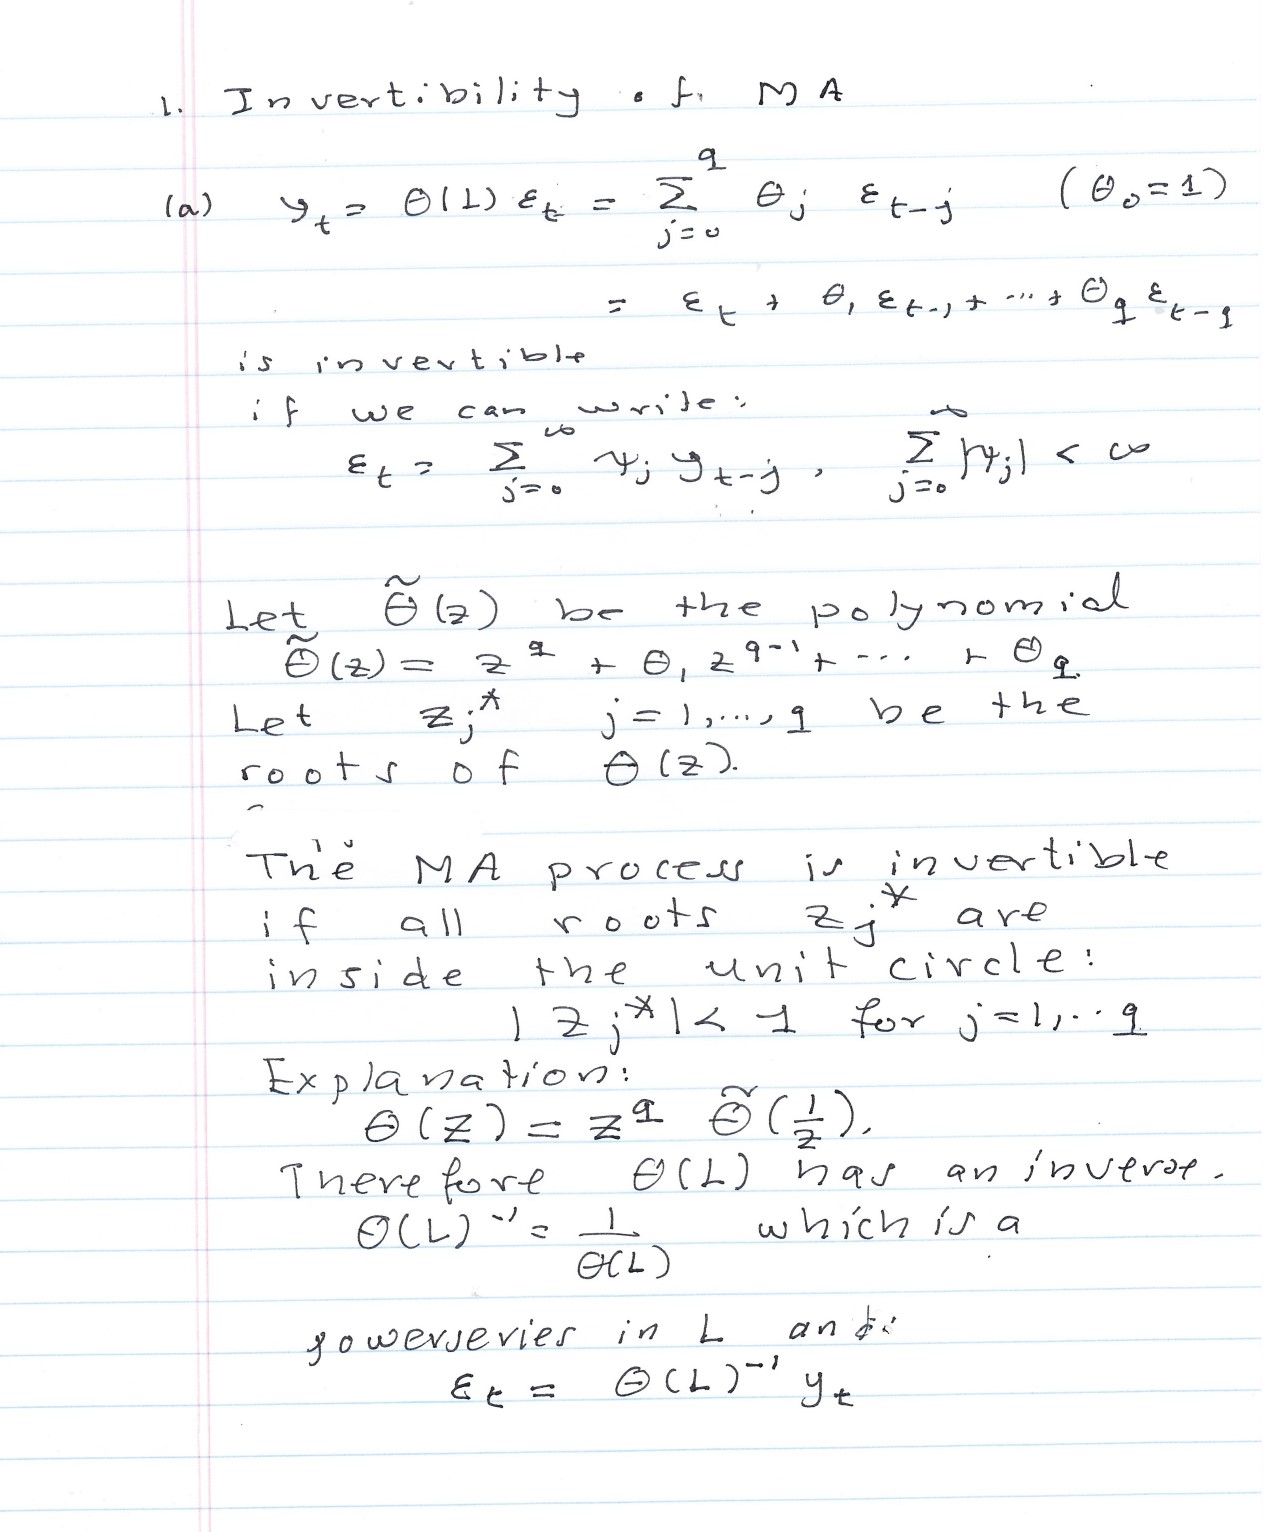 1. Invertibility of MA
(a) y_t = θ(L) ε_t = Σ_{j=0}^{q} θ_j ε_{t-j} (θ_0 = 1)
= ε_t + θ_1 ε_{t-1} + ... + θ_q ε_{t-q}
is invertible
if we can write:
ε_t = Σ_{j=0}^{∞} ψ_j y_{t-j}, Σ_{j=0}^{∞} |ψ_j| < ∞
Let θ̃(z) be the polynomial
θ̃(z) = z^q + θ_1 z^{q-1} + ... + θ_q.
Let z_j^* j = 1,...,q be the
roots of θ(z).
The MA process is invertible
if all roots z_j^* are
inside the unit circle:
|z_j^*| < 1 for j=1,..q
Explanation:
θ(z) = z^q θ̃(1/z).
Therefore θ(L) has an inverse.
θ(L)^{-1} = 1/θ(L) which is a
powerseries in L and:
ε_t = θ(L)^{-1} y_t